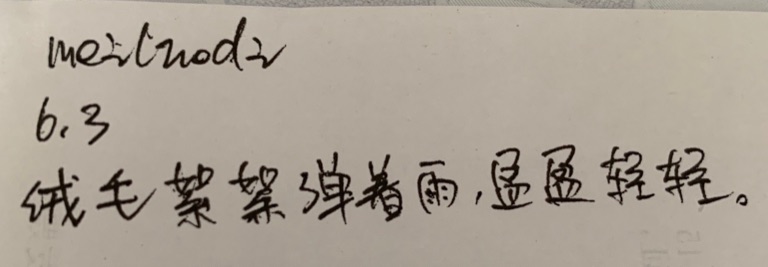 6.3
绒毛絮絮弹着雨,盈盈轻轻。